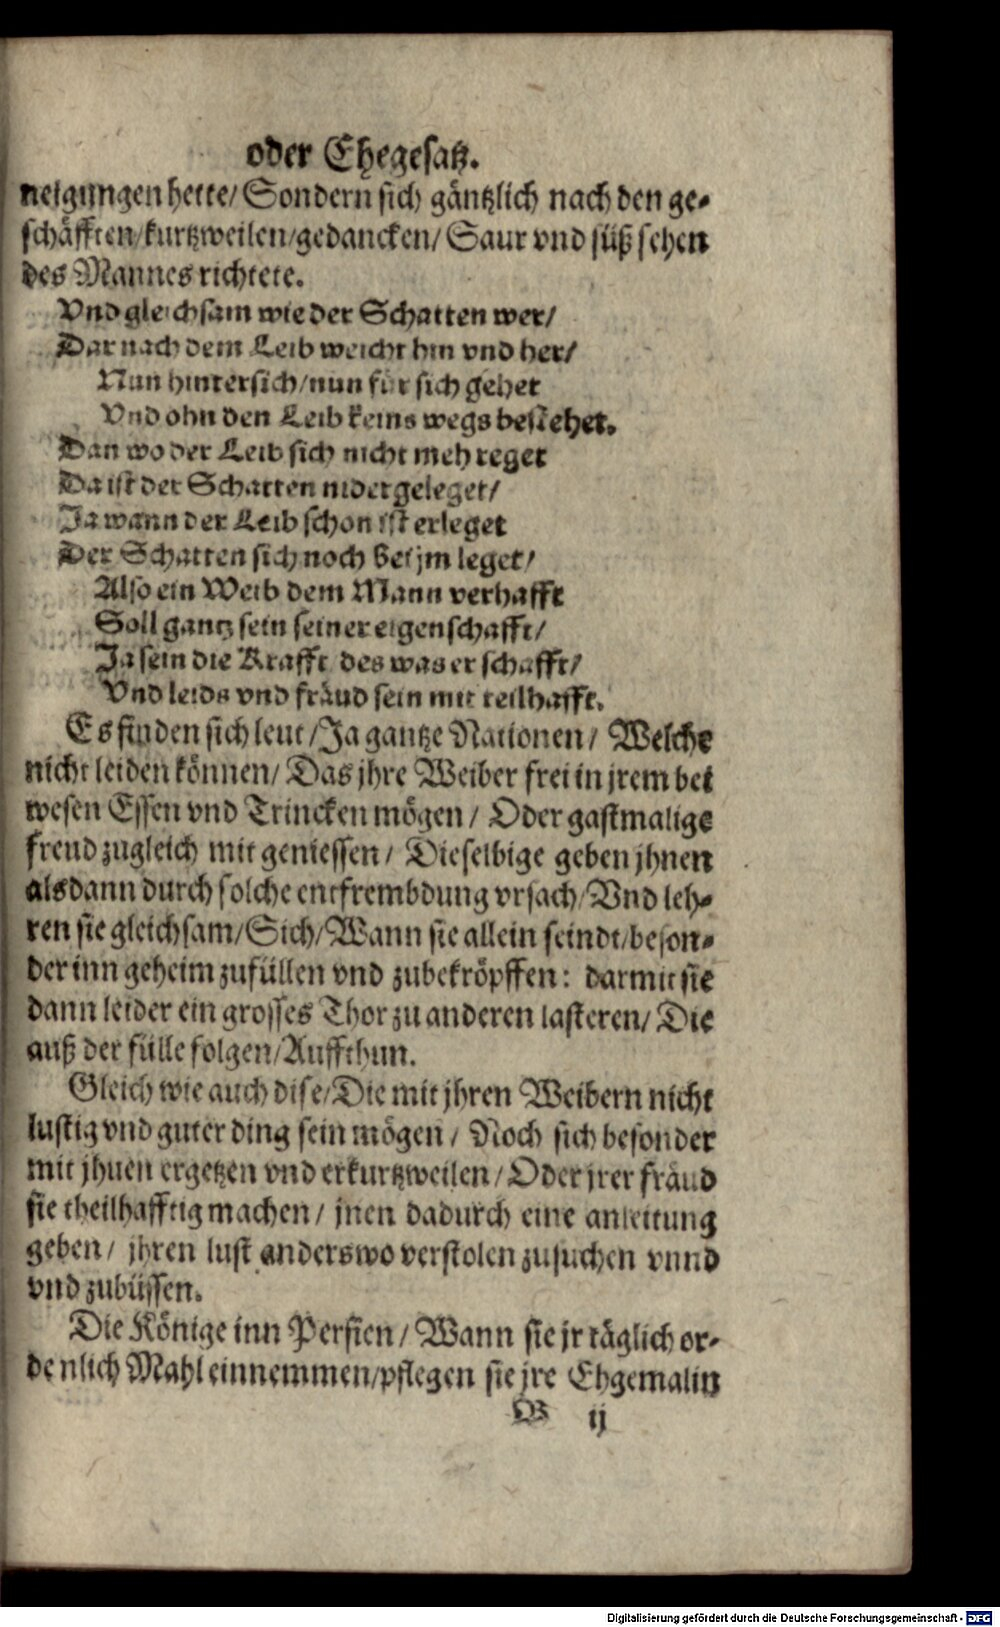 oder Ehegesatz.
neigungen hette/ Sondern sich gäntzlich nach den ge-
schäfften/kurtzweilen/gedancken/ Saur vnd süß sehen
des Mannes richtete.
Vnd gleichsam wie der Schatten wer/
Dar nach dem Leib weicht hin vnd her/
Nun hintersich/nun für sich gehet
Vnd ohn den Leib keins wegs bestehet.
Dan wo der Leib sich nicht meh reget
Da ist der Schatten nidergeleget/
Ja wann der Leib schon ist erleget
Der Schatten sich noch bei jm leget/
Also ein Weib dem Mann verhafft
Soll gantz sein seiner eigenschafft/
Ja sein die Krafft des was er schafft/
Vnd leids vnd fräud sein mit teilhafft.
Es finden sich leut/Ja gantze Nationen/ Welche
nicht leiden können/ Das jhre Weiber frei in jrem bei
wesen Essen vnd Trincken mögen/ Oder gastmalige
freud zugleich mit geniessen/ Dieselbige geben jhnen
alsdann durch solche entfrembdung vrsach/Vnd leh-
ren sie gleichsam/Sich/Wann sie allein seindt/beson-
der inn geheim zufüllen vnd zubekröpffen: darmit sie
dann leider ein grosses Thor zu anderen lasteren/ Die
auß der fülle folgen/Auffthun.
Gleich wie auch dise/Die mit jhren Weibern nicht
lustig vnd guter ding sein mögen/ Noch sich besonder
mit jhnen ergetzen vnd erkurtzweilen/Oder jrer fräud
sie theilhafftig machen/ jnen dadurch eine anleitung
geben/ jhren lust anderswo verstolen zusuchen vnnd
vnd zubüssen.
Die Könige inn Persien/ Wann sie jr täglich or-
denlich Mahl einnemmen/pflegen sie jre Ehgemalin
B ij
Digitalisierung gefördert durch die Deutsche Forschungsgemeinschaft - DFG